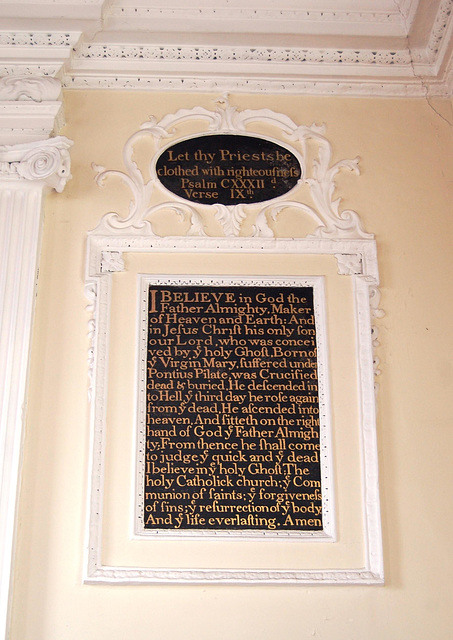 Let thy Priests be
clothed with righteouſneſs
Psalm CXXXII d
Verse IXth
I BELIEVE in God the
Father Almighty, Maker
of Heaven and Earth: And
in Jeſus Chriſt his only ſon
our Lord, who was concei
ved by ẙ holy Ghoſt, Born of
ẙ Virgin Mary, ſuffered under
Pontius Pilate, was Crucified
dead & buried, He deſcended in
to Hell, ẙ third day he roſe again
from ẙ dead, He aſcended into
heaven, And ſitteth on the right
hand of God ẙ Father Almigh
ty; From thence he ſhall come
to judge ẙ quick and ẙ dead
I believe in ẙ holy Ghoſt, The
holy Catholick church; ẙ Com
munion of ſaints; ẙ forgiveneſs
of ſins; ẙ reſurrection of ẙ body
And ẙ life everlaſting. Amen